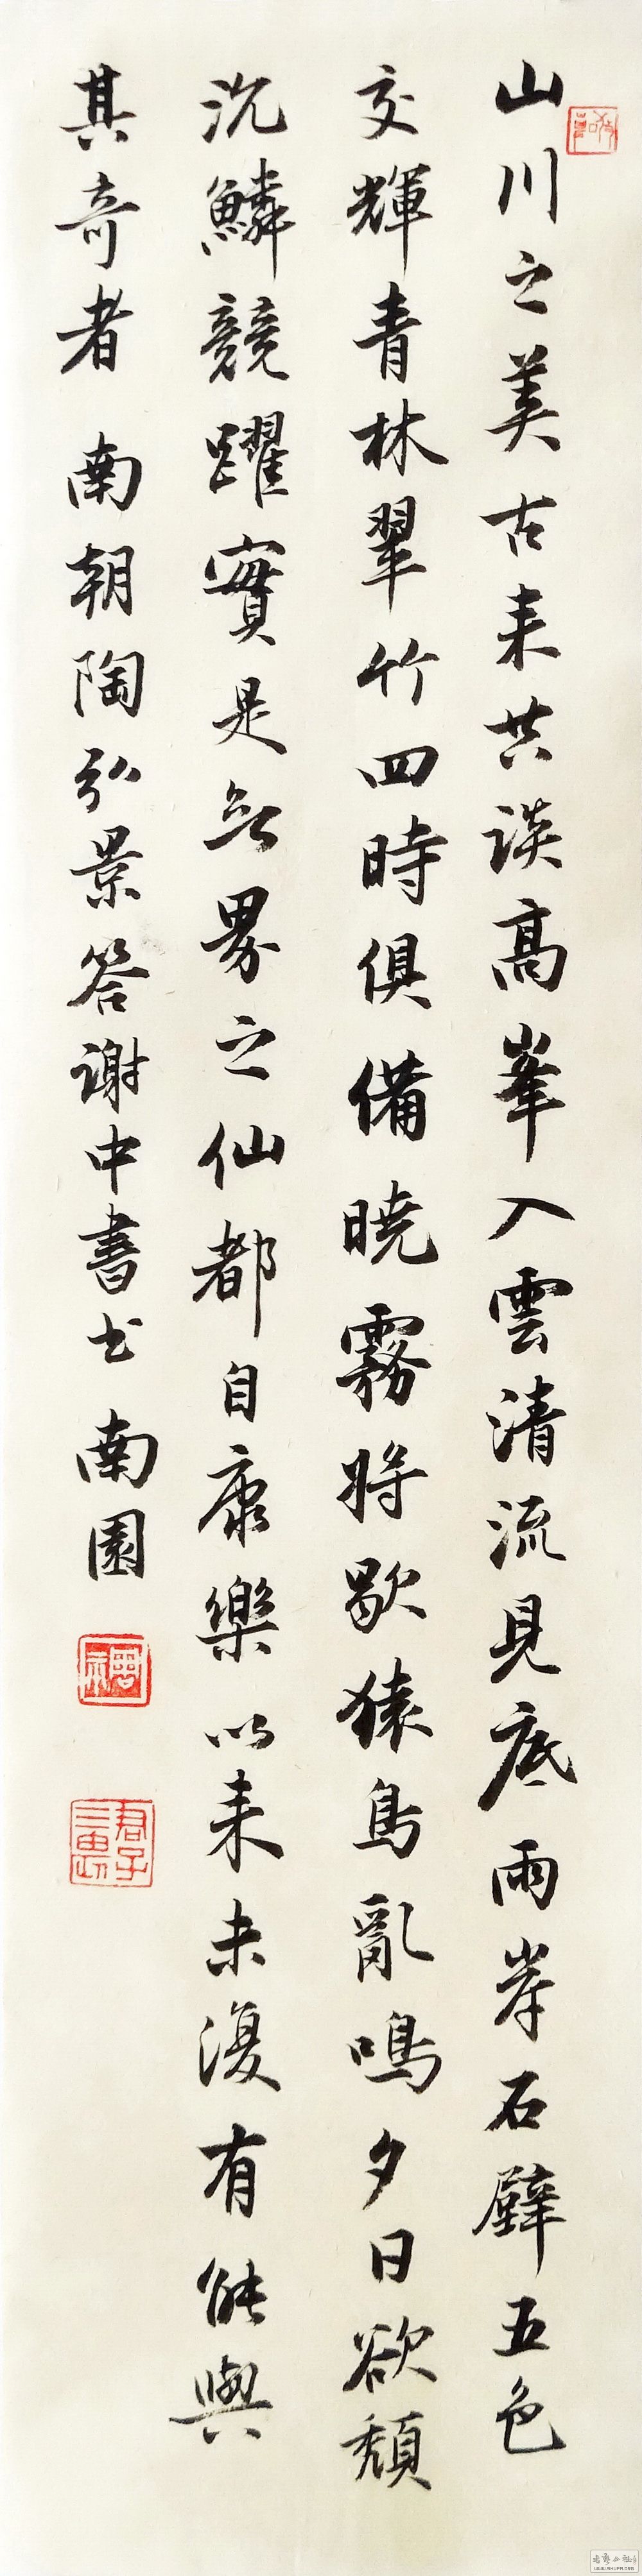 山川之美古来共談高峯入雲清流見底兩岸石壁五色
交輝青林翠竹四時俱備曉霧將歇猿鳥亂鳴夕日欲頹
沉鱗競躍實是欲界之仙都自康樂以来未復有能與
其奇者 南朝陶弘景答謝中書書 南園
君子三畏
WWW.SHUFA.ORG